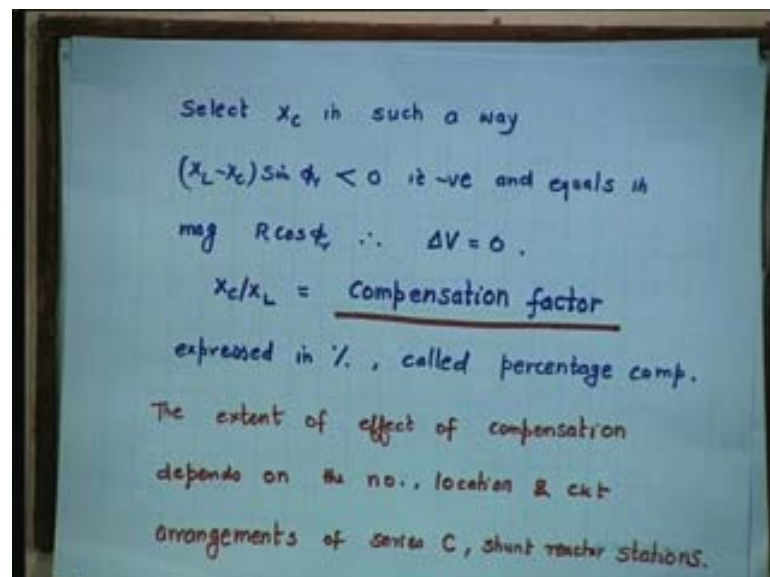 Select Xc in such a way
(XL-Xc) Sin ϕr < 0 ie -ve and equals in
mag R Cos ϕr ∴ ΔV = 0.
Xc/XL = Compensation factor
expressed in %, called percentage comp.
The extent of effect of compensation
depends on the no., location & ckt
arrangements of series C, shunt reactor stations.